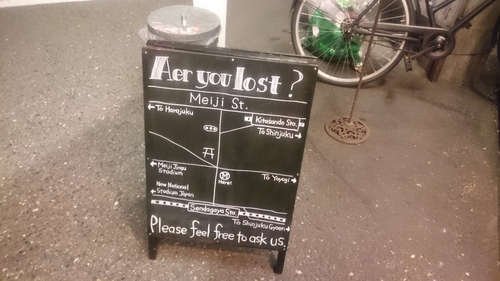 Aer you lost?
Meiji St.
← To Harajuku
Kitasando Sta.
To Shinjuku →
← Meiji Jingu
Stadium
M
Here!
To Yoyogi →
New National
← Stadium Japan
Sendagaya Sta.
To Shinjuku Gyoen →
Please feel free to ask us.